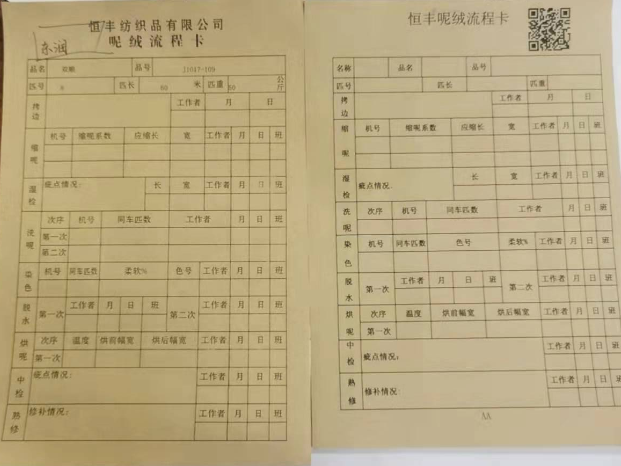 恒丰纺织品有限公司
呢绒流程卡
东润
品名 品号 21017-109
匹号 6 匹长 60 米 匹重 60 公斤
烤边 工作者 月 日
缩呢 机号 缩呢系数 应缩长 宽 工作者 月 日 班
湿检 疵点情况: 长 宽 工作者 月 日 班
洗呢 次序 机号 同车匹数 工作者 月 日 班
第一次
第二次
染色 机号 同车匹数 柔软% 色号 工作者 月 日 班
脱水 第一次 工作者 月 日 班 第二次 工作者 月 日 班
烘呢 次序 温度 烘前幅宽 烘后幅宽 工作者 月 日 班
第一次
中检 疵点情况: 工作者 月 日 班
熟修 修补情况: 工作者 月 日 班
恒丰呢绒流程卡
名称 品名 品号
匹号 匹长 匹重
烤边 工作者 月 日
缩呢 机号 缩呢系数 应缩长 宽 工作者 月 日 班
湿检 疵点情况: 长 宽 工作者 月 日 班
洗呢 次序 机号 同车匹数 工作者 月 日 班
染色 机号 同车匹数 色号 柔软% 工作者 月 日 班
脱水 第一次 工作者 月 日 班 第二次 工作者 月 日 班
烘呢 次序 温度 烘前幅宽 烘后幅宽 工作者 月 日 班
第一次
中检 疵点情况: 工作者 月 日 班
熟修 修补情况: 工作者 月 日 班
AA